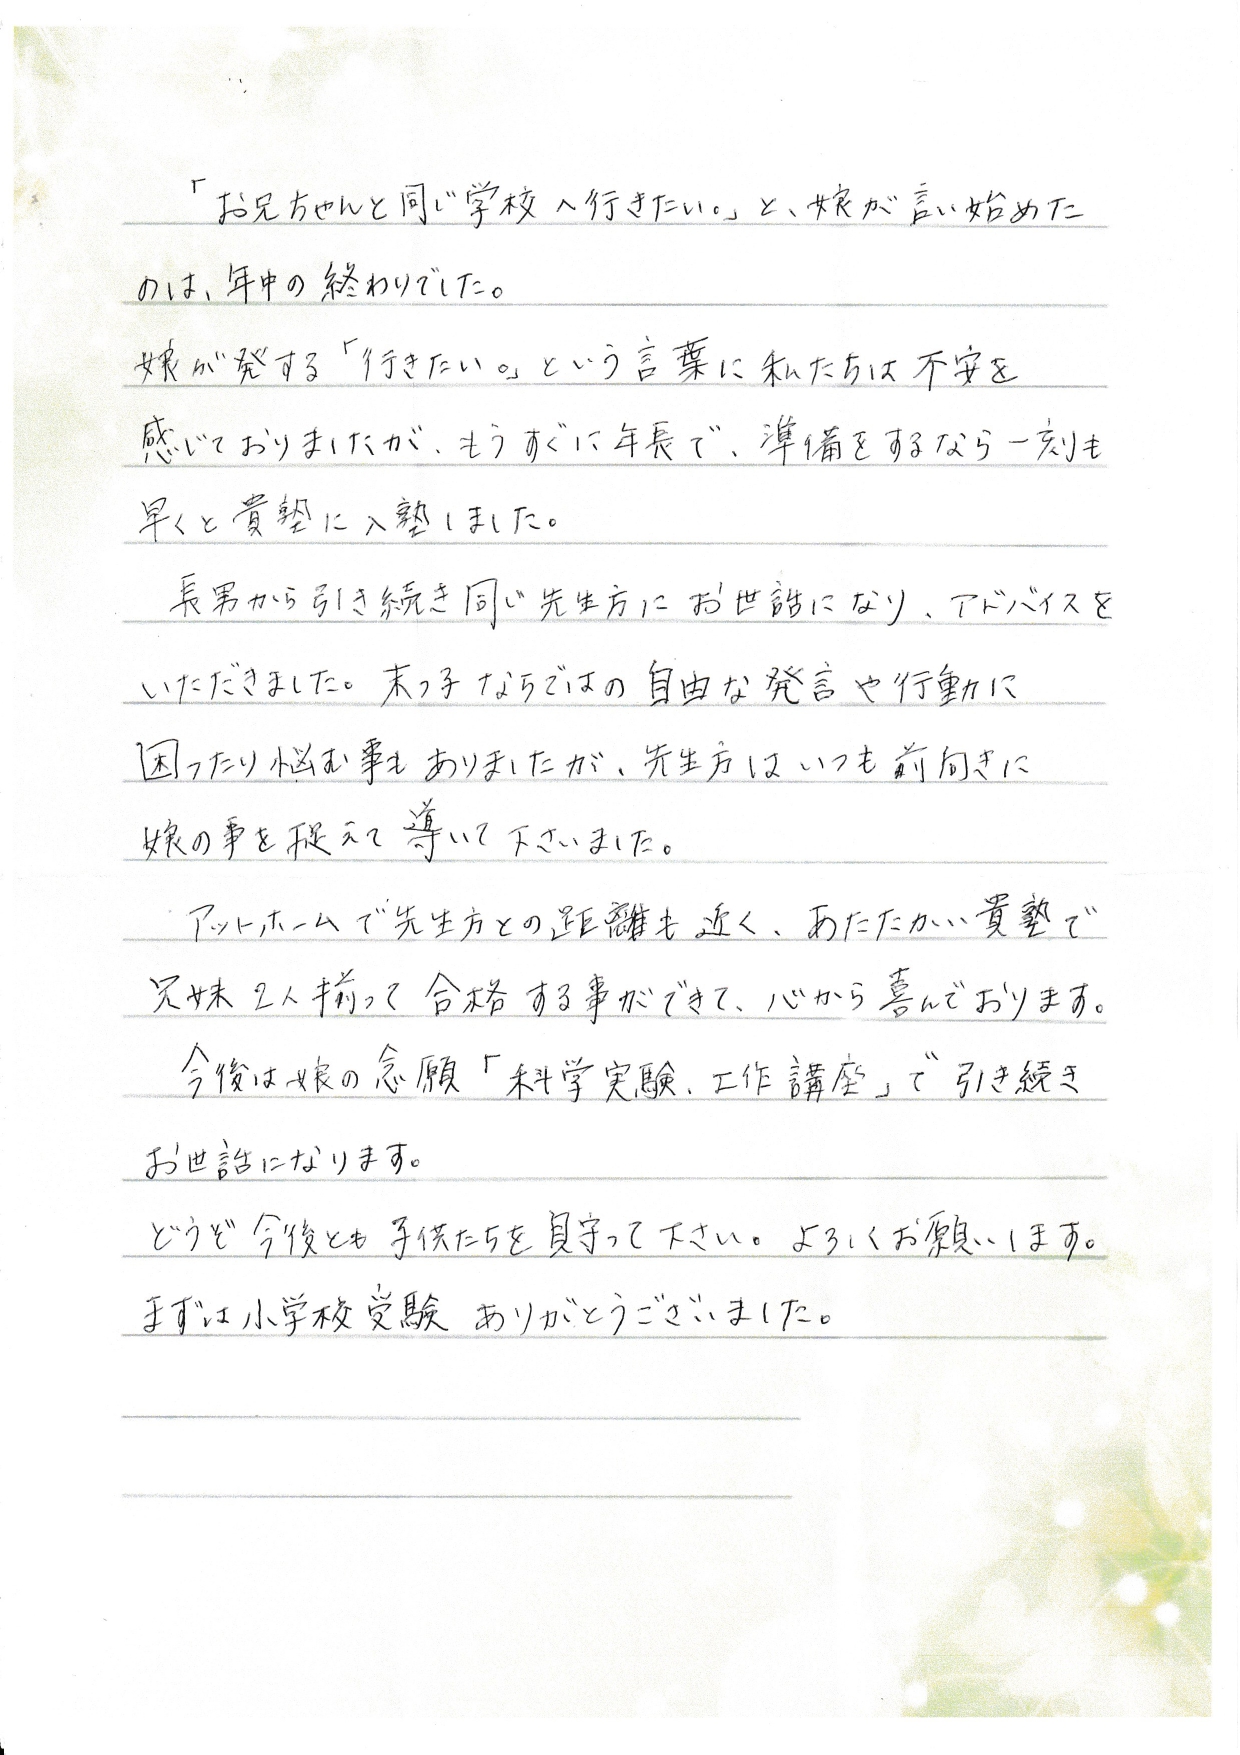 「お兄ちゃんと同じ学校へ行きたい。」と、娘が言い始めた
のは、年中の終わりでした。
娘が発する「行きたい。」という言葉に私たちは不安を
感じておりましたが、もうすぐに年長で、準備をするなら一刻も
早くと貴塾に入塾しました。
長男から引き続き同じ先生方にお世話になり、アドバイスを
いただきました。末っ子ならではの自由な発言や行動に
困ったり悩む事もありましたが、先生方はいつも前向きに
娘の事を捉えて導いて下さいました。
アットホームで先生方との距離も近く、あたたかい貴塾で
兄妹2人揃って合格する事ができて、心から喜んでおります。
今後は娘の念願「科学実験、工作講座」で引き続き
お世話になります。
どうぞ今後とも子供たちを見守って下さい。よろしくお願いします。
まずは小学校受験ありがとうございました。